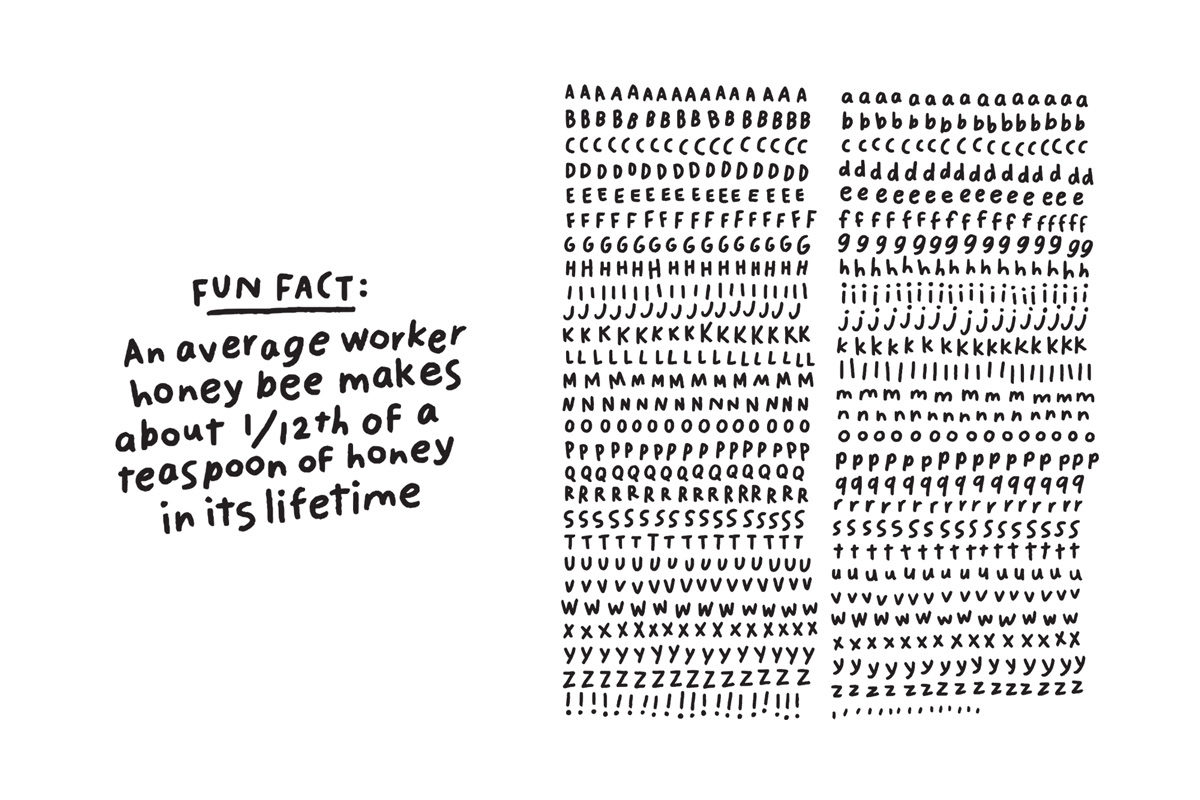 FUN FACT:
An average worker
honey bee makes
about 1/12th of a
teaspoon of honey
in its lifetime
A A A A A A A A A A A A A A A A
B B B B B B B B B B B B B B B B
C C C C C C C C C C C C C C C C
D D D D D D D D D D D D D D D D
E E E E E E E E E E E E E E E E
F F F F F F F F F F F F F F F F
G G G G G G G G G G G G G G G G
H H H H H H H H H H H H H H H H
I I I I I I I I I I I I I I I I
J J J J J J J J J J J J J J J J
K K K K K K K K K K K K K K K K
L L L L L L L L L L L L L L L L
M M M M M M M M M M M M M M M
N N N N N N N N N N N N N N N N
O O O O O O O O O O O O O O O O
P P P P P P P P P P P P P P P P
Q Q Q Q Q Q Q Q Q Q Q Q Q Q Q
R R R R R R R R R R R R R R R R
S S S S S S S S S S S S S S S S
T T T T T T T T T T T T T T T T
U U U U U U U U U U U U U U U U
V V V V V V V V V V V V V V V V
W W W W W W W W W W W W
X X X X X X X X X X X X X X X X
Y Y Y Y Y Y Y Y Y Y Y Y Y Y Y Y
Z Z Z Z Z Z Z Z Z Z Z Z Z Z Z
! ! ! ! ! ! ! ! ! ! ! ! ! ! ! ! ! !
a a a a a a a a a a a a a a a
b b b b b b b b b b b b b b b b
c c c c c c c c c c c c c c c c c
d d d d d d d d d d d d d d d d
e e e e e e e e e e e e e e e
f f f f f f f f f f f f f f f f f
g g g g g g g g g g g g g g g
h h h h h h h h h h h h h h h h
i i i i i i i i i i i i i i i i i i
j j j j j j j j j j j j j j j j
k k k k k k k k k k k k k k k k
l l l l l l l l l l l l l l l l l
m m m m m m m m m m m m
n n n n n n n n n n n n n n n
o o o o o o o o o o o o o o o
p p p p p p p p p p p p p p p
q q q q q q q q q q q q q q q
r r r r r r r r r r r r r r r r
s s s s s s s s s s s s s s s s
t t t t t t t t t t t t t t t t
u u u u u u u u u u u u u u
v v v v v v v v v v v v v v v v
w w w w w w w w w w w w
x x x x x x x x x x x x x x x
y y y y y y y y y y y y y y y
z z z z z z z z z z z z z z z
' ' ' ' ' ' ' ' ' ' ' ' ' ' '